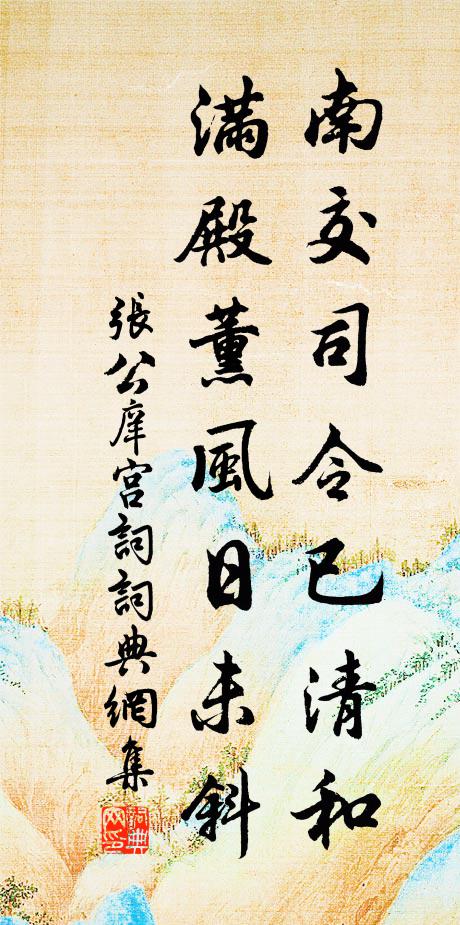 南交司令已清和
滿殿薰風日未斜
張公庠宮詞詞典網集
詞典
网印